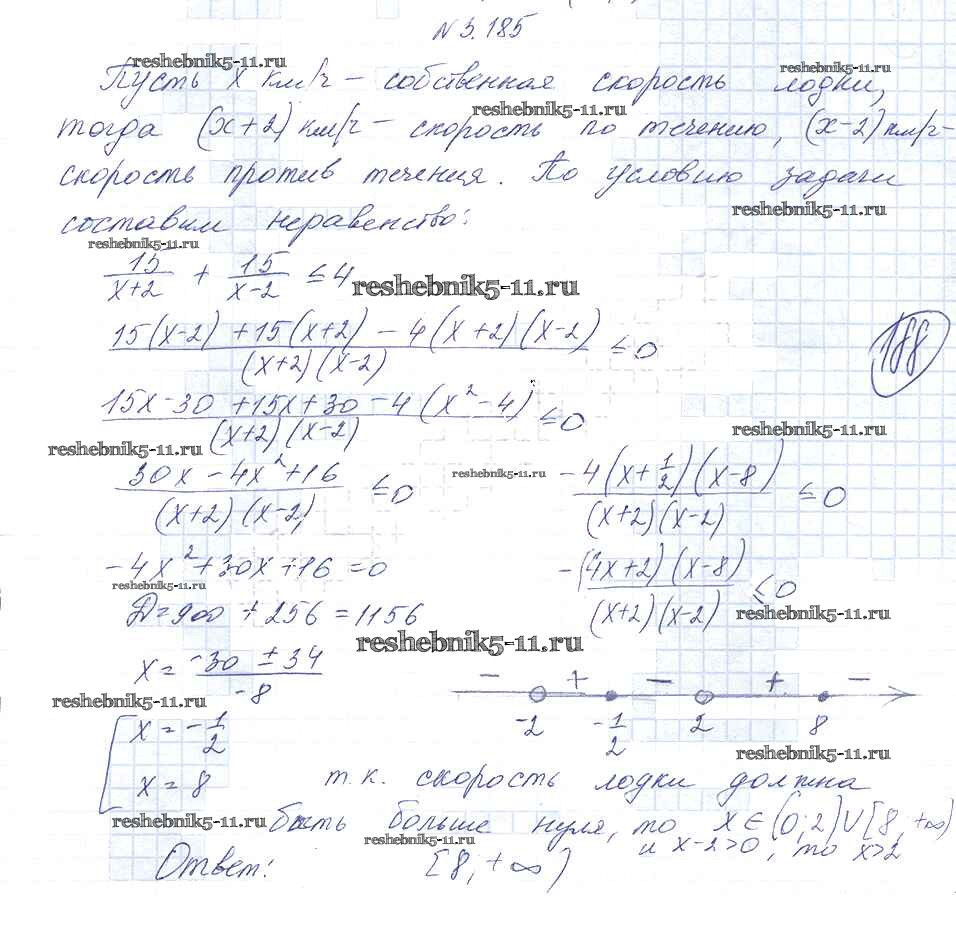 № 3.185
reshebnik5-11.ru
Пусть x км/ч – собственная скорость лодки,
reshebnik5-11.ru
reshebnik5-11.ru
тогда (x+2) км/ч – скорость по течению, (x-2) км/ч –
скорость против течения. По условию задачи
reshebnik5-11.ru
составим неравенство:
reshebnik5-11.ru
15/(x+2) + 15/(x-2) ≤ 4
reshebnik5-11.ru
(15(x-2) + 15(x+2) - 4(x+2)(x-2))/((x+2)(x-2)) ≤ 0
188
(15x-30 + 15x+30 - 4(x²-4))/((x+2)(x-2)) ≤ 0
reshebnik5-11.ru
reshebnik5-11.ru
(30x - 4x² + 16)/((x+2)(x-2)) ≤ 0
reshebnik5-11.ru
-4(x+1/2)(x-8)/((x+2)(x-2)) ≤ 0
-4x² + 30x + 16 = 0
reshebnik5-11.ru
-(4x+2)(x-8)/((x+2)(x-2)) ≤ 0
reshebnik5-11.ru
Д = 900 + 256 = 1156
reshebnik5-11.ru
x = (-30 ± 34)/-8
reshebnik5-11.ru
– + – + –
-2 -1/2 2 8
[ x = -1/2
x = 8
reshebnik5-11.ru
т.к. скорость лодки должна
reshebnik5-11.ru
быть больше нуля, то x ∈ (0; 2) ∪ [8, +∞)
reshebnik5-11.ru
и x-2>0, то x>2
Ответ: [8, +∞)